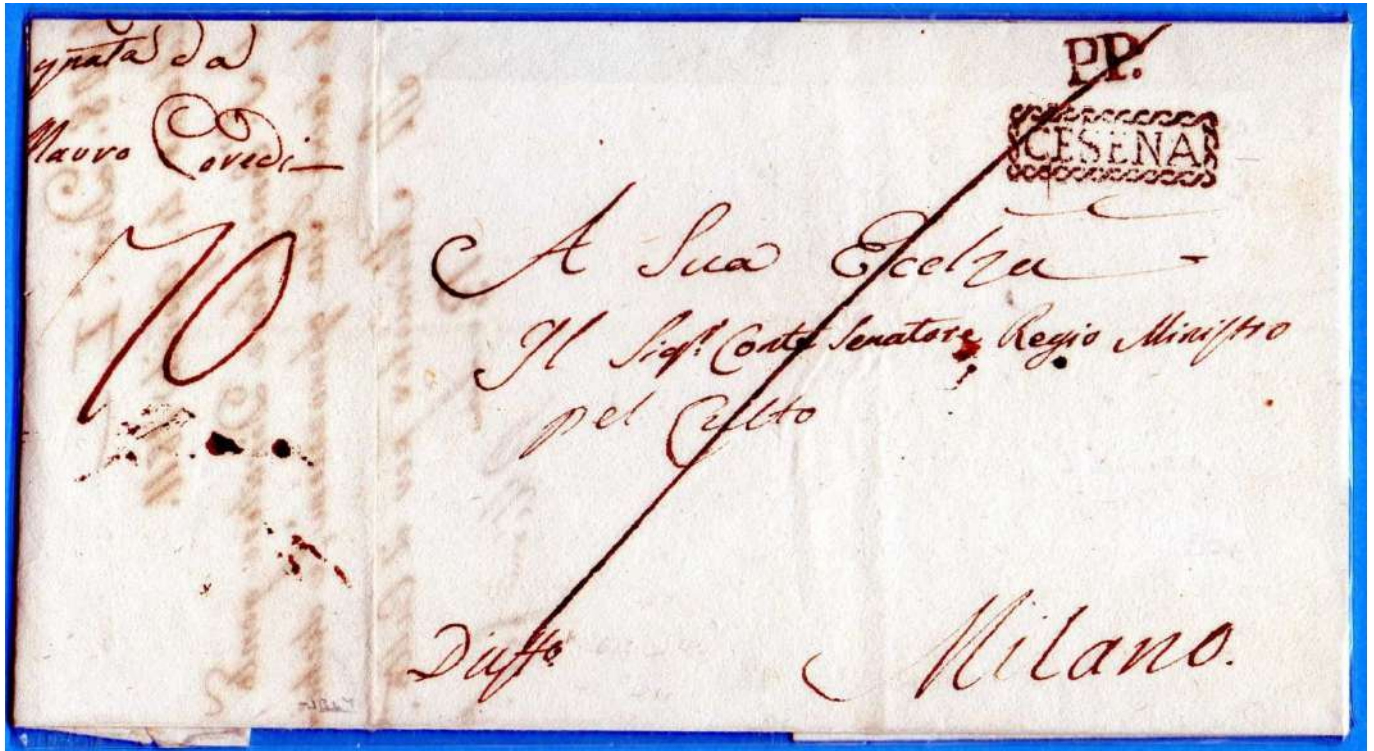 gnata da
Mauro
70
P.P.
CESENA
A Sua Ecelza
Il Sigr. Conte Senatore Regio Ministro
pel Culto
Milano.